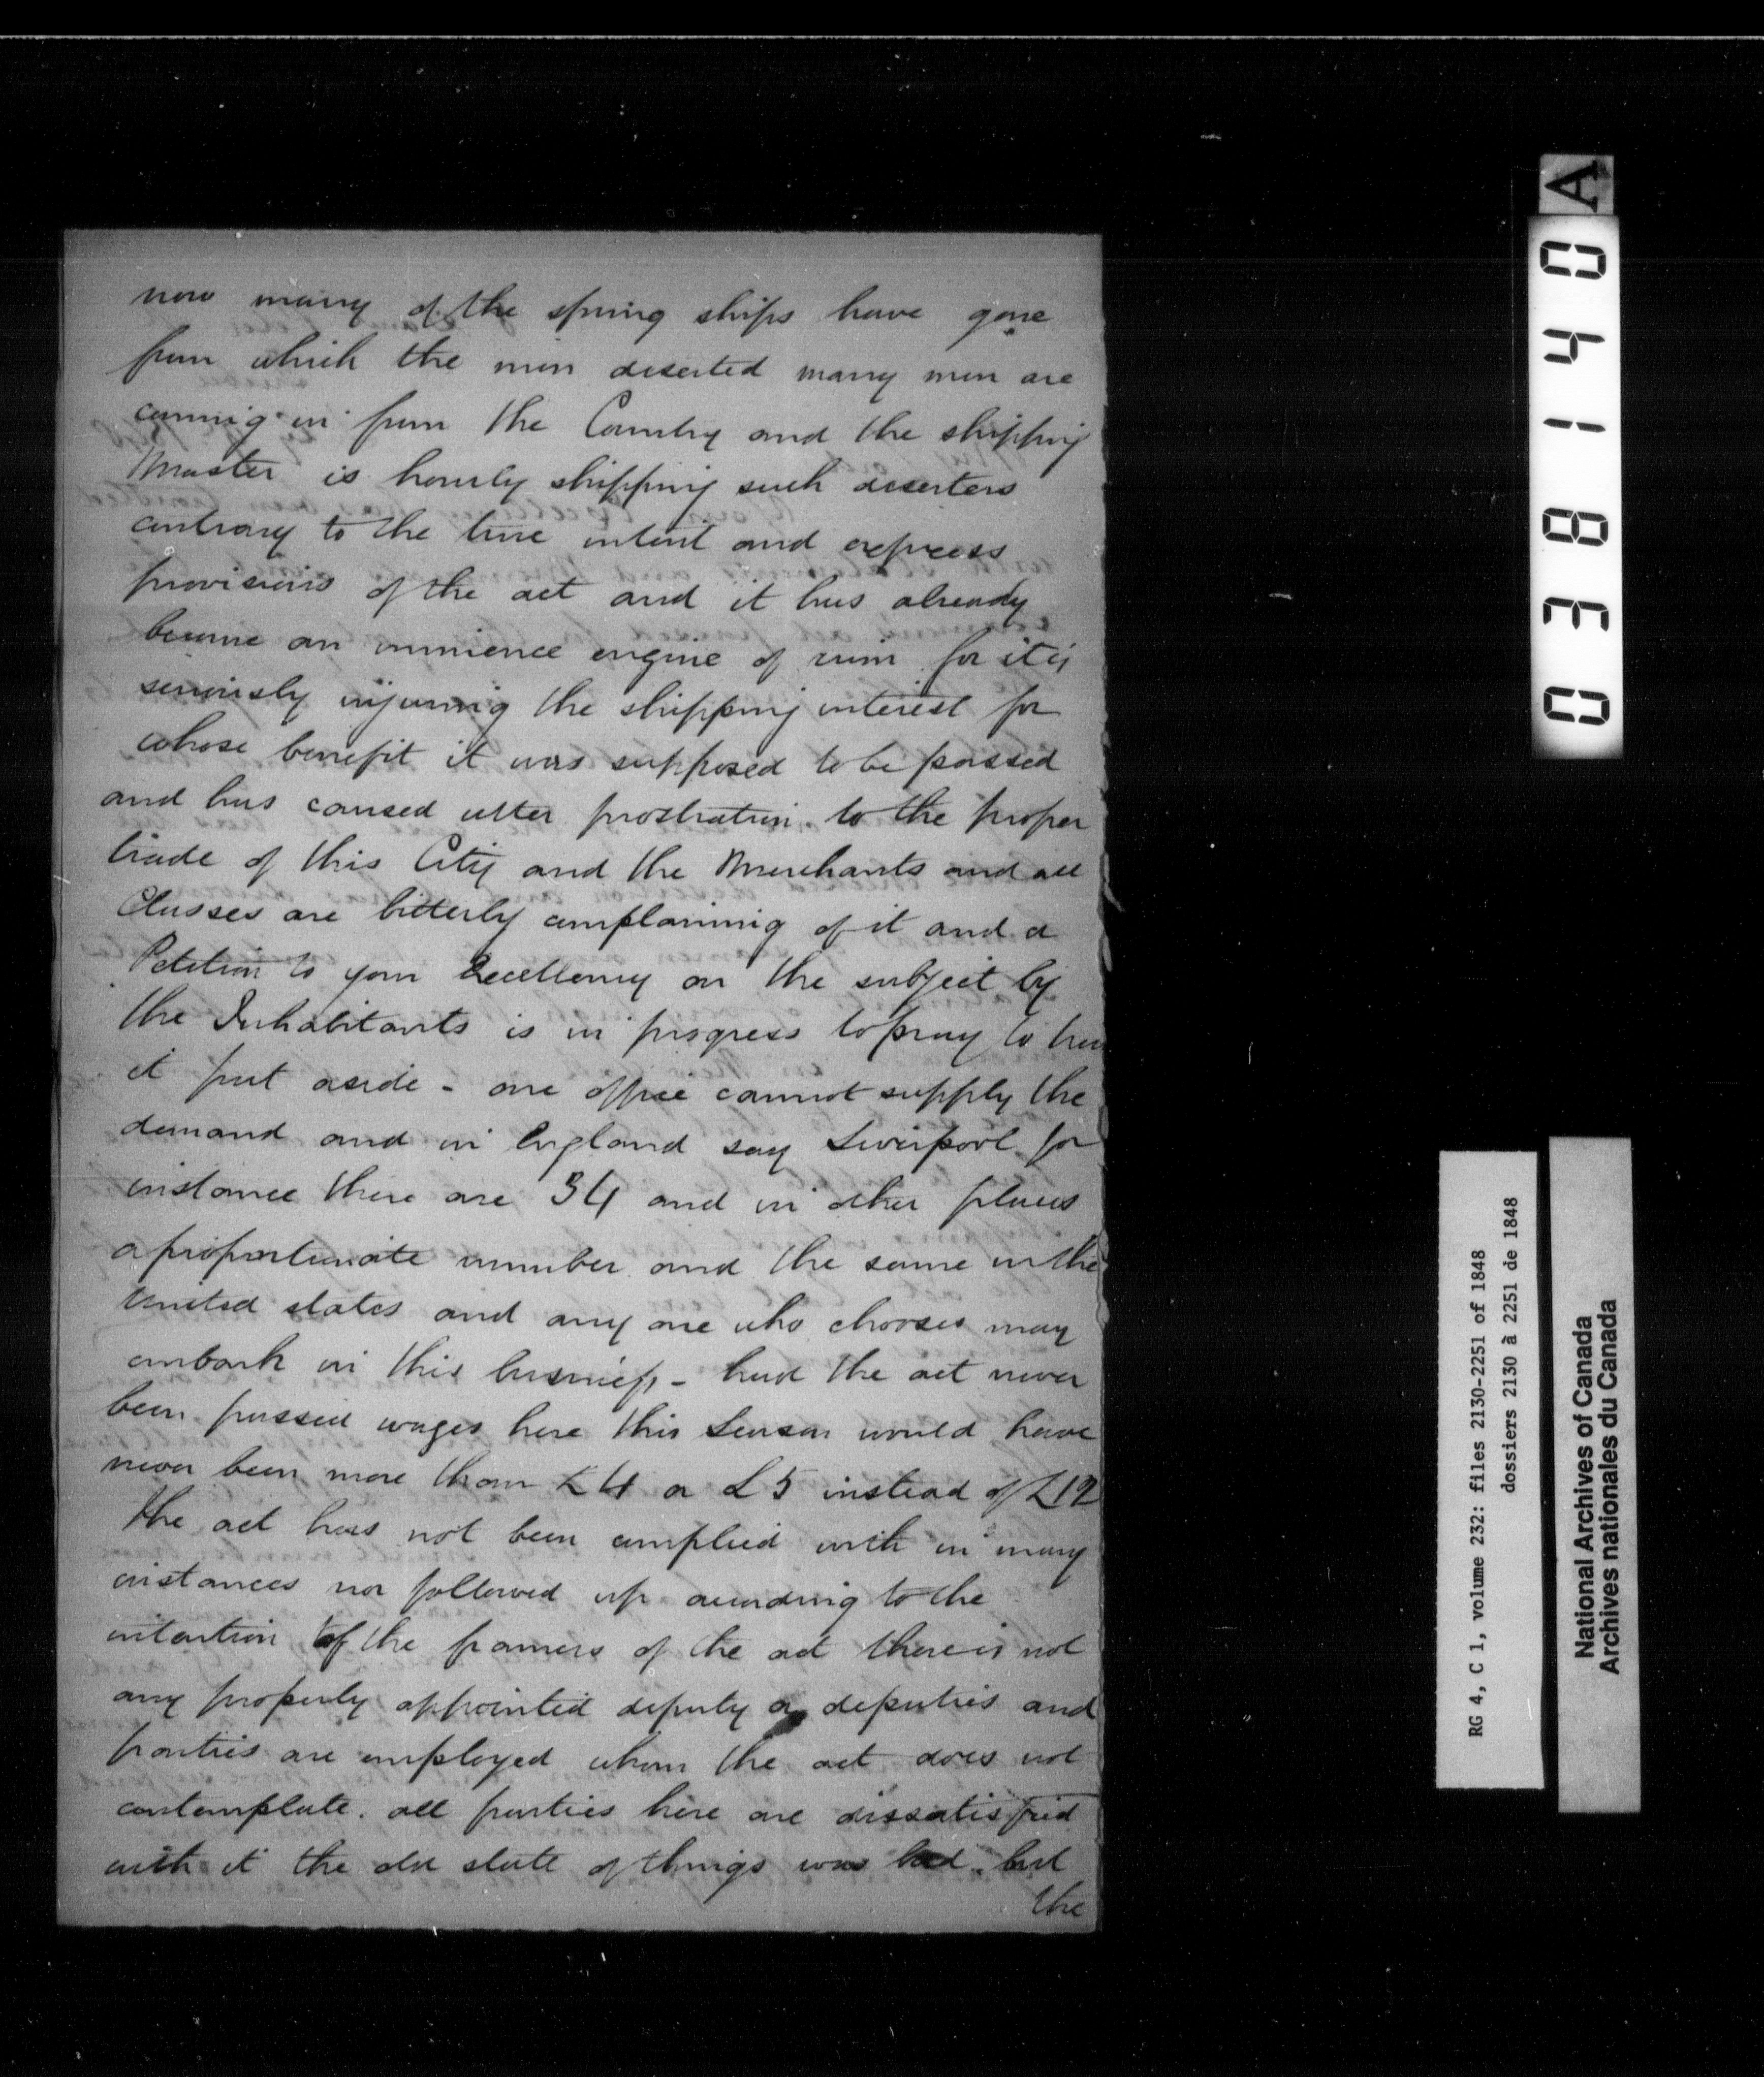 now many of the spring ships have gone
from which the men deserted many men are
coming in from the Country and the shipping
Master is hourly shipping such deserters
contrary to the true intent and express
provisions of the act and it has already
become an immence engine of ruin for it is
seriously injuring the shipping interest for
whose benefit it was supposed to be passed
and has caused utter prostration to the proper
trade of this City and the Merchants and all
Classes are bitterly complaining of it and a
Petition to your Excellency on the subject by
the Inhabitants is in progress to pray to have
it put aside - one office cannot supply the
demand and in England say Liverpool for
instance there are 34 and in other places
a proportionate number and the same in the
United states and any one who chooses may
embark in this business - had the act never
been passed wages here this Season would have
never been more than £4 or £5 instead of £12
the act has not been complied with in many
instances nor followed up according to the
intention of the framers of the act there is not
any properly appointed deputy or deputies and
parties are employed whom the act does not
contemplate. all parties here are dissatisfied
with it the old state of things was bad but
the
A
038140
RG 4, C 1, volume 232: files 2130-2251 of 1848
dossiers 2130 à 2251 de 1848
National Archives of Canada
Archives nationales du Canada